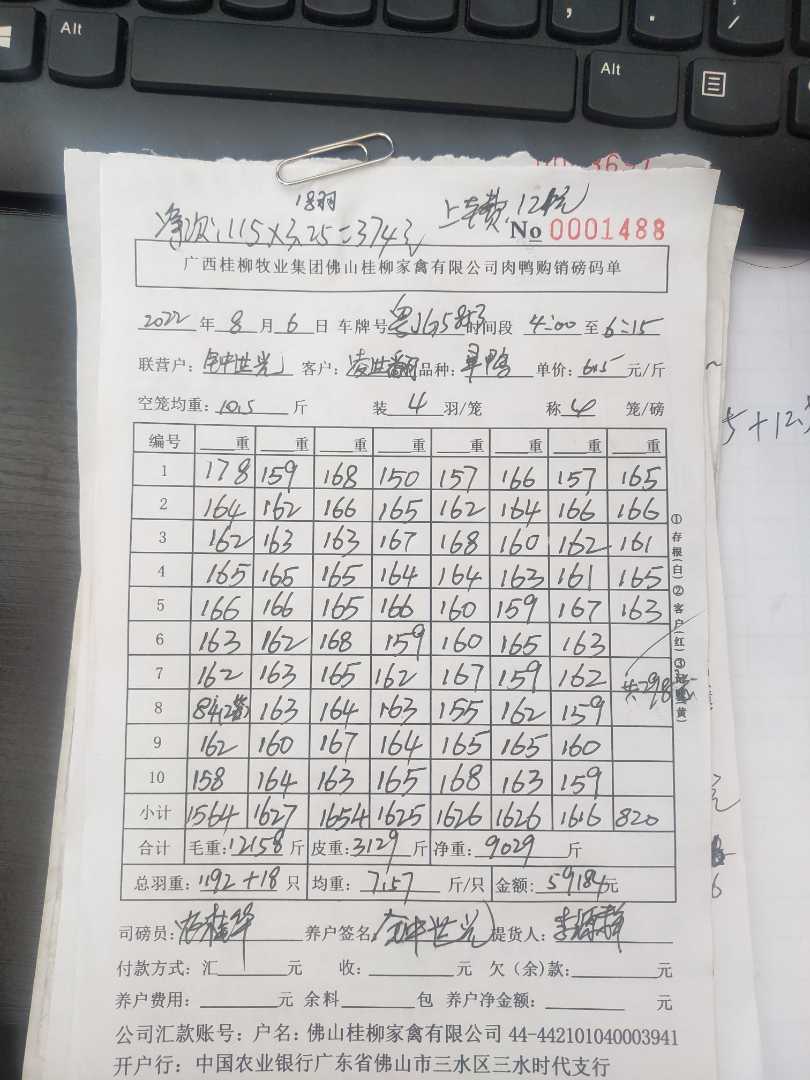 Alt
Alt
18羽
净次:115×3.25=374元
上车费:12元
No 0001488
广西桂柳牧业集团佛山桂柳家禽有限公司肉鸭购销磅码单
2022 年 8 月 6 日 车牌号 时间段 4:00 至 6:15
联营户: 客户: 品种: 单价: 6.5 元/斤
空笼均重: 10.5 斤 装 4 羽/笼 称 4 笼/磅
编号 重 重 重 重 重 重 重 重
1 178 159 168 150 157 166 157 165
2 164 162 166 165 162 164 166 166
3 162 163 163 167 168 160 162 161
4 165 165 165 164 164 163 161 165
5 166 166 165 166 160 159 167 163
6 163 162 168 159 160 165 163
7 162 163 165 162 167 159 162 共298笼
8 84(2笼) 163 164 163 155 162 159
9 162 160 167 164 165 165 160
10 158 164 163 165 168 163 159
小计 1564 1627 1654 1625 1626 1626 1616 820
合计 毛重: 12158 斤 皮重: 3129 斤 净重: 9029 斤
总羽重: 1192+18 只 均重: 7.57 斤/只 金额: 59184 元
司磅员: 养户签名: 提货人:
付款方式: 汇 元 收: 元 欠(余)款: 元
养户费用: 元 余料 包 养户净金额: 元
公司汇款账号: 户名: 佛山桂柳家禽有限公司 44-442101040003941
开户行: 中国农业银行广东省佛山市三水区三水时代支行
①存根(白)②客户(红)③(黄)